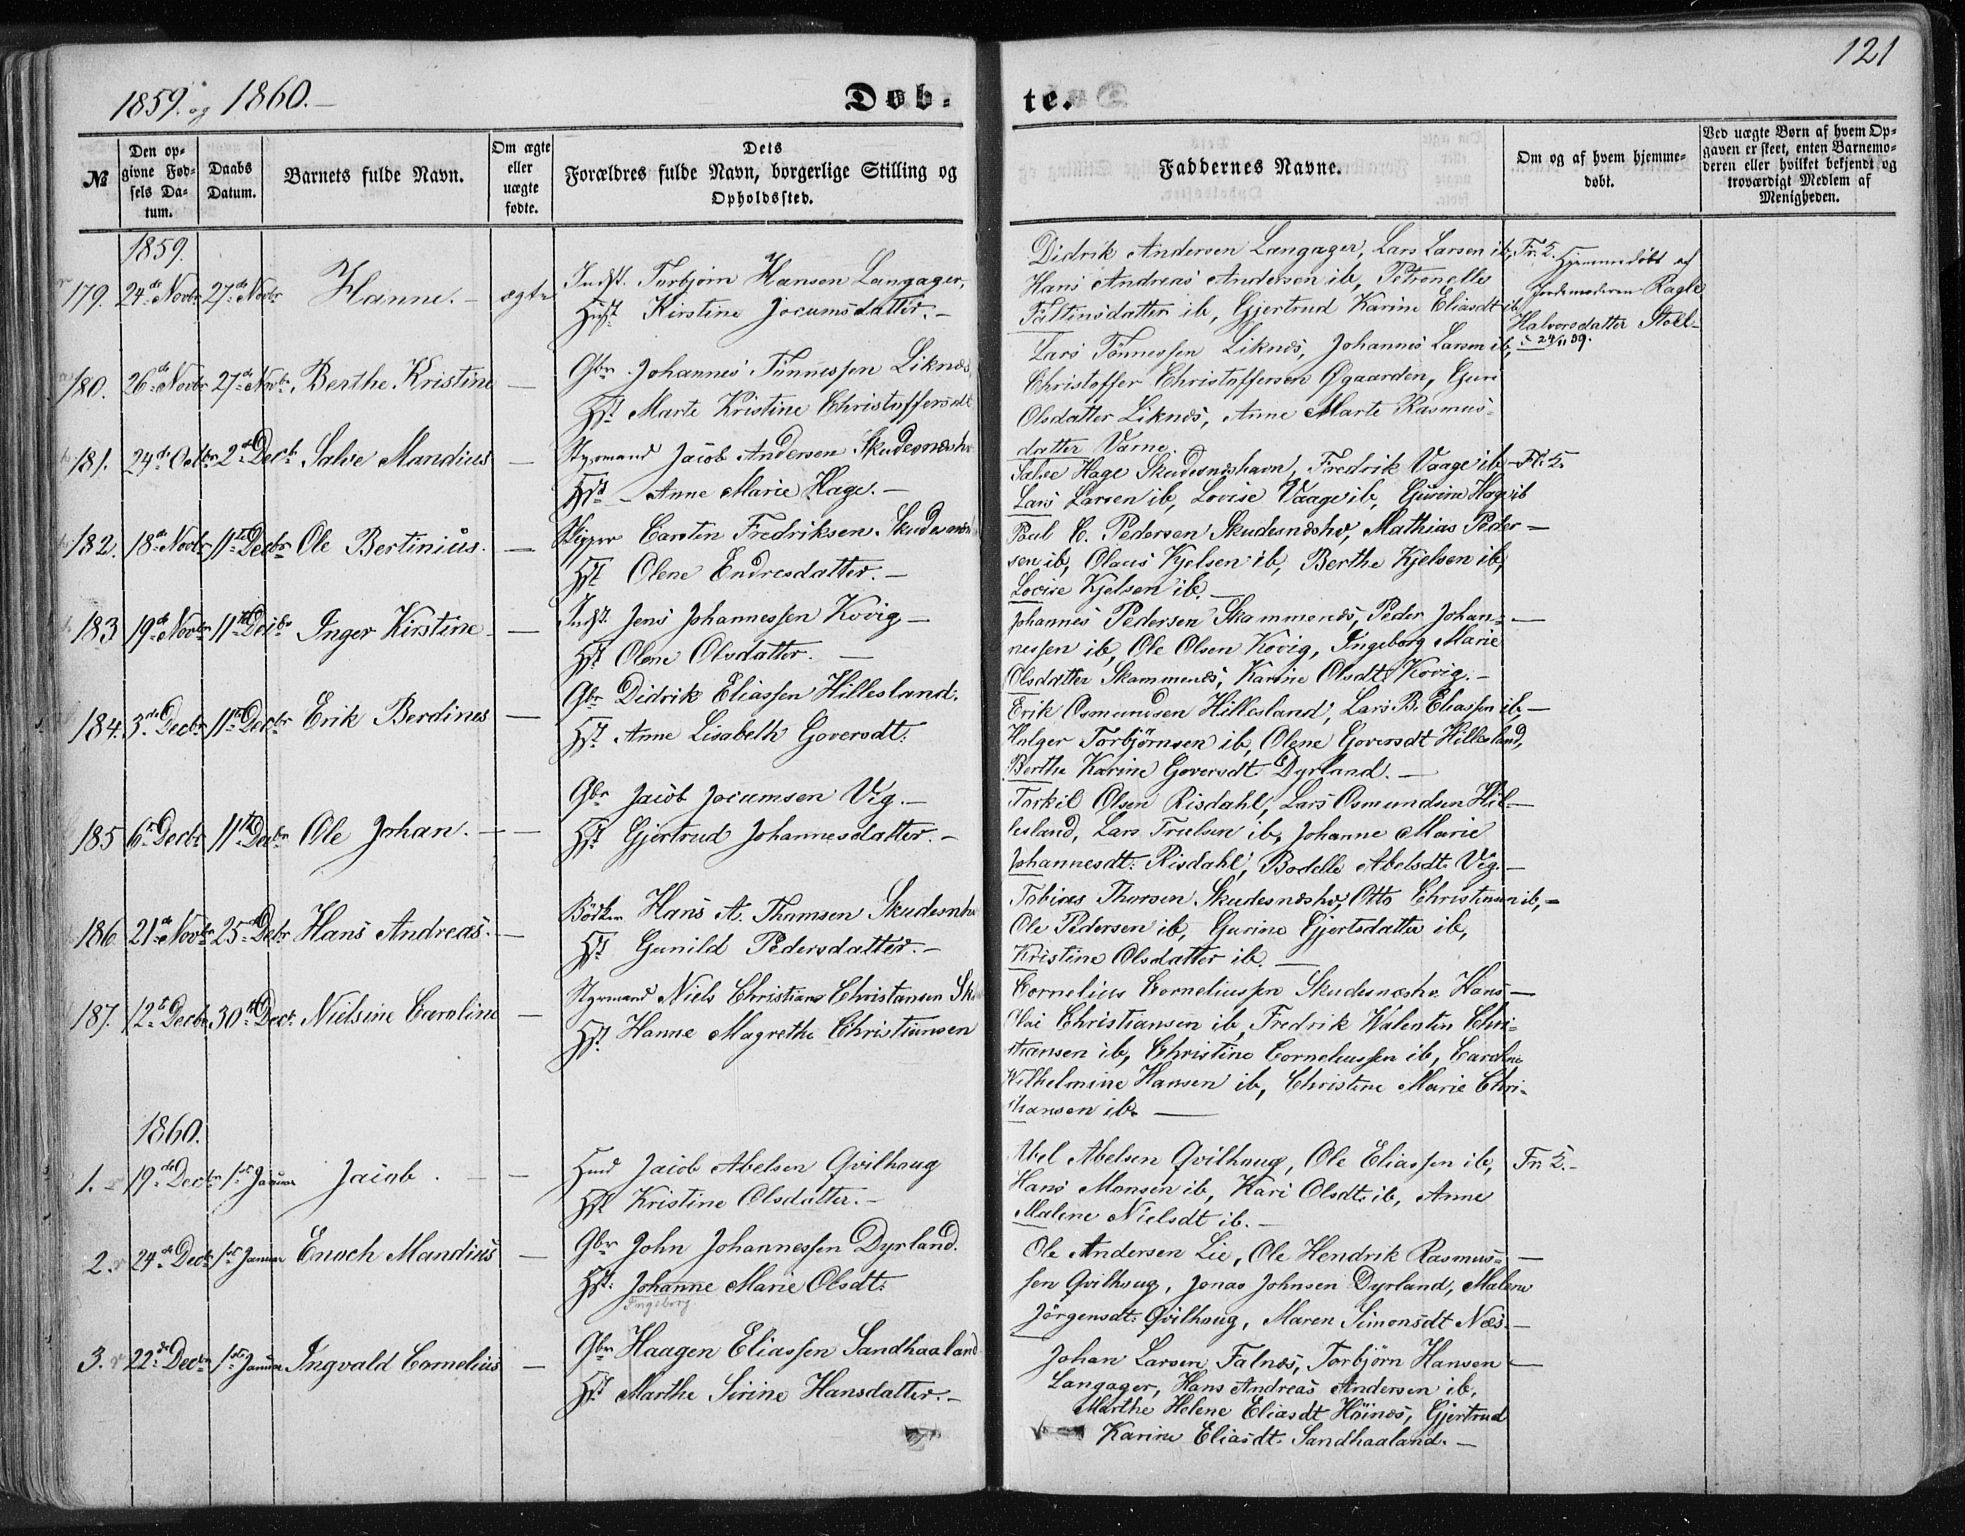 121
1859. og 1860.-
Döb- te.
№
Den op-
givne Fød-
sels Da-
tum.
Daabs
Datum.
Barnets fulde Navn.
Om ægte
eller
uægte
fødte.
Dets
Forældres fulde Navn, borgerlige Stilling og
Opholdssted.
Faddernes Navne.
Om og af hvem hjemme-
døbt.
Ved uægte Børn af hvem Op-
gaven er skeet, enten Barnemo-
deren eller hvilket bekjendt og
troværdigt Medlem af
Menigheden.
1859.
179. 24de Novbr 27de Novbr Hanne.- ægte Indst. Torbjørn Hansen Langager,
Hust. Kirstine Jocumsdatter.-
Didrik Andersen Langager, Lars Larsen ib,
Hans Andreas Andersen ib, Petronelle
Faltinsdatter ib, Gjertrud Karine Eliasdt ib,
Fr. 5. Hjemmedøbt af
Jordemoderen Ragle
Halvorsdatter Stoll-
24/11 59.
180. 26de Novbr 27de Novbr. Berthe Kristine — Gbr. Johannes Tönnessen Liknæs,
Hst Marte Kristine Christoffersdt
Lars Tönnessen Liknæs, Johannes Larsen ib,
Christoffer Christoffersen Øgaarden, Guri
Olsdatter Liknæs, Anne Marte Rasmus-
datter Varne.
181. 24de Octbr 2de Decb. Salve Mandius — Styrmand Jacob Andersen Skudesnæshv
Hst - Anne Marie Hage.-
Salve Hage Skudesnæshavn, Fredrik Vaage ib, Fr. 5.
Lars Larsen ib, Lovise Vaage ib, Gurine Hage ib
182. 18de Novbr 11te Decbr Ole Bertinius. — Skipper Carsten Fredriksen. Skudesnæs
Hst. Olene Endresdatter.-
Poul C. Pedersen Skudesnæshv, Mathias Peder-
sen ib, Olaus Kjelsen ib, Berthe Kjelsen ib,
Lovise Kjelsen ib.
183 19de Novbr 11te Decbr Inger Kirstine — Indst. Jens Johannessen Kovig-
Hst Olene Olsdatter. —
Johannes Pedersen Skammenæs, Peder Johan-
nessen ib, Ole Olsen Kovig, Ingeborg Marie
Olsdatter Skammenæs, Karine Olsdt Kovig.-
184. 3de Decbr 11te Decbr Erik Berdines — Gbr Didrik Eliassen Hillesland.
Hst Anne Lisabeth Goversdt.
Erik Osmundsen Hillesland, Lars B. Eliassen ib,
Holger Torbjörnsen ib, Olene Goversdt Hillesland,
Berthe Karine Goversdt Dyrland.-
185 6te Decbr 11te Decbr Ole Johan. — Gbr Jacob Jocumsen Vig.-
Hst Gjertrud Johannesdatter.-
Torkil Olsen Risdahl, Lars Osmundsen Hil-
lesland, Lars Trulsen ib, Johanne Marie
Johannesdt: Risdahl, Bodelle Abelsdt. Vig.-
186 21de Novbr 25de Decbr Hans Andreas. — Bödker Hans A. Thomsen Skudesnhv
Hst Gunild Pedersdatter.-
Tobias Thorsen Skudesnæshv, Otto Christensen ib,
Ole Pedersen ib, Gurine Gjertsdatter ib,
Kristine Olsdatter ib.
187. 12te Decbr 30te Decbr. Nielsine Caroline — Styrmand Niels Christians Christansen Sk
Hst. Hanne Magrethe Christiansen
Cornelius Corneliussen Skudesnæshv. Hans
Christiansen ib, Fredrik Walentin Chri-
stiansen ib, Christine Corneliussen ib, Caroline
Wilhelmine Hansen ib, Christine Marie Chri-
stiansen ib.
1860.
1. 19de Decbr 1ste Januar Jacob. — Hmd Jacob Abelsen Qvilhaug
Hst. Kristine Olsdatter.-
Abel Abelsen Qvilhaug, Ole Eliassen ib, Fr. 5.-
Hans Monsen ib, Kari Olsdt. ib, Anne
Malene Nielsdt ib.-
2. 24de Decbr 1ste Januar Enoch Mandius — Gbr John Johannessen Dyrland.
Hst. Johanne Marie Olsdt.
Ingeborg
Ole Andersen Lie, Ole Hendrik Rasmus-
sen Qvilhaug, Jonas Johnsen Dyrland, Malene
Jörgensdt. Qvilhaug, Maren Simonsdt Næs.-
3. 22de Decbr 1ste Januar Ingvald Cornelius — Gbr Haagen Eliassen Sandhaaland
Hst. Marthe Sirine Hansdatter.-
Johan Larsen Falnæs, Torbjørn Hansen
Langager, Hans Andreas Andersen ib,
Marthe Helene Eliasdt Höinæs, Gjertrud
Karine Eliasdt. Sandhaaland.-